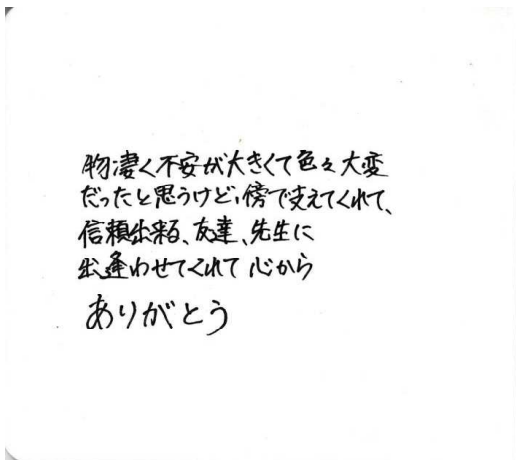 物凄く不安が大きくて色々大変
だったと思うけど、傍で支えてくれて、
信頼出来る、友達、先生に
出逢わせてくれて 心から
ありがとう